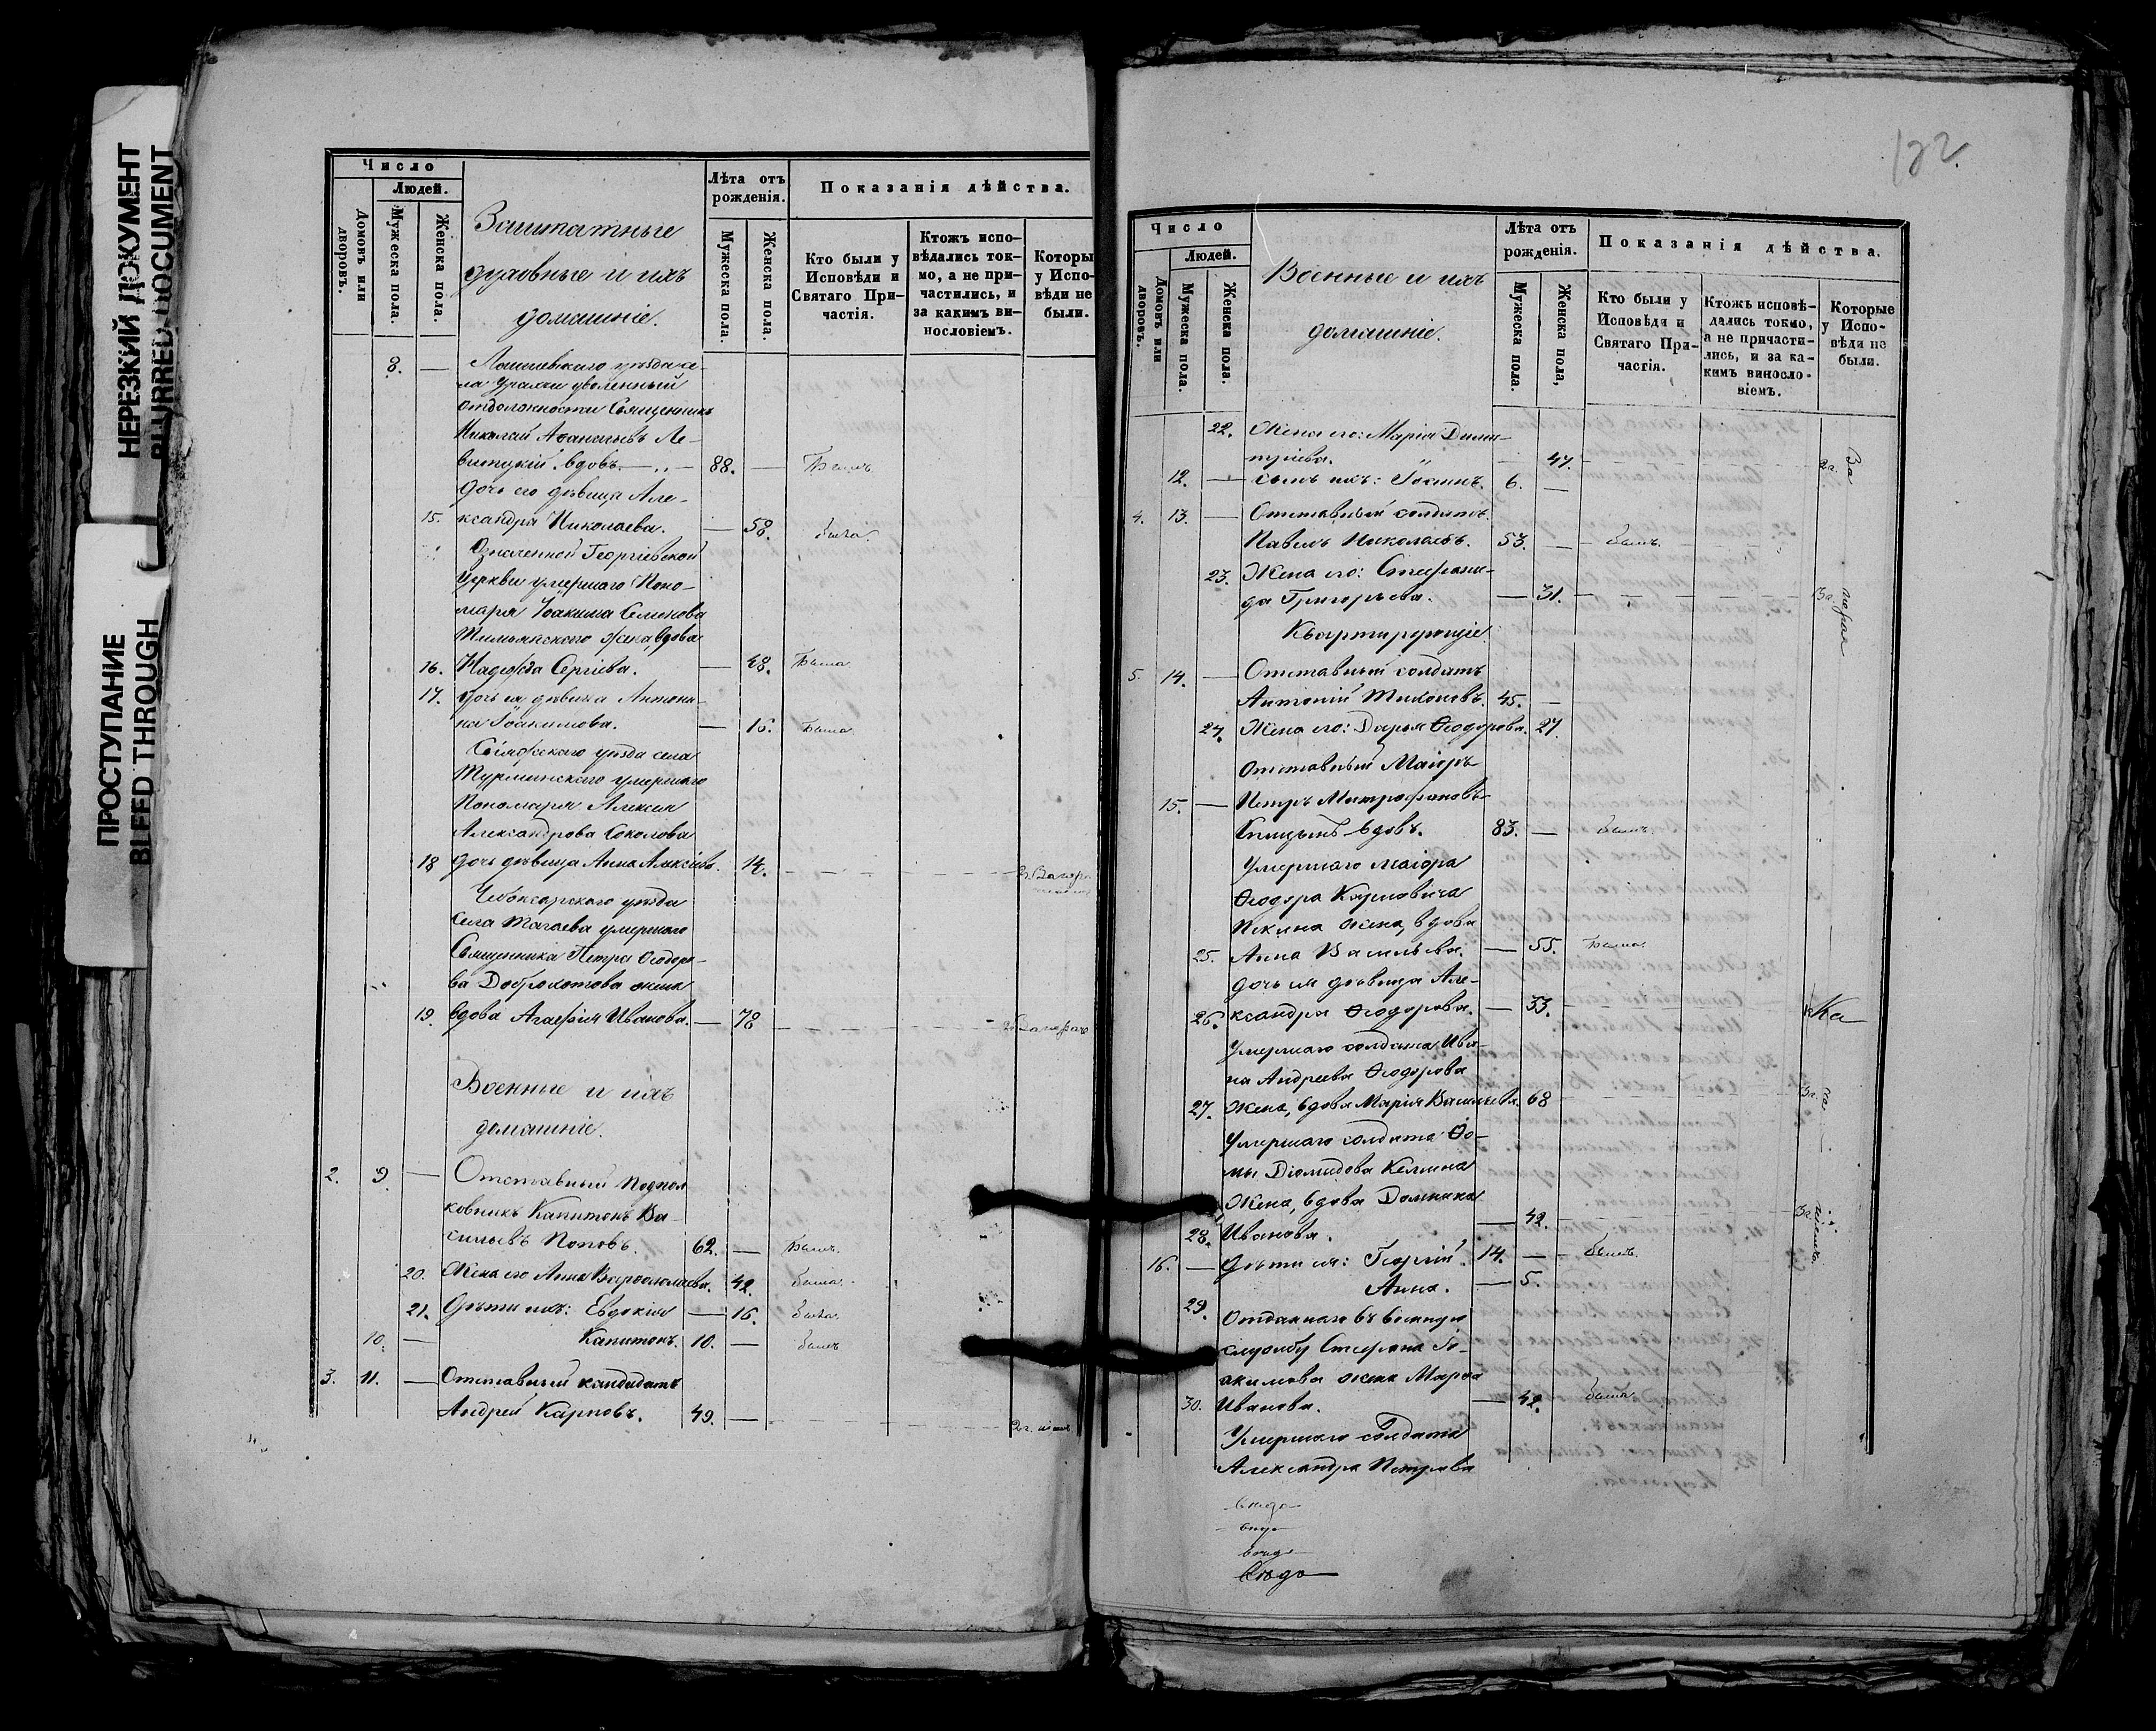 НЕРЕЗКИЙ ДОКУМЕНТ
BLURRED DOCUMENT
ПРОСТУПАНИЕ
BLEED THROUGH
Число
Людей.
Домовъ или дворовъ.
Мужеска пола.
Женска пола.
Заштатные
духовные и ихъ
домашніе.
Лѣта отъ рожденія.
Мужеска пола.
Женска пола.
Показанія дѣйства.
Кто были у Исповѣди и Святаго Причастія.
Ктожъ исповѣдались токмо, а не причастились, и за какимъ винословіемъ.
Которы у Испо- вѣди не были.
8. — уѣзда се-
ла уволенный
отдолжности Священникъ
Николай Аѳанасьевъ Ле-
витскій. вдовъ. — 88. — Былъ
дочь его дѣвица Але-
15. ксандра Николаева. — 58. была
Означенной Георгіевской
Церкви умершаго Поно-
маря Іоакима Семенова
жена, вдова
16. Надежда Сергіева. — 48. Была
17. дочь ея дѣвица Антони-
на Іоакимова. — 16. Была
Свіяжскаго уѣзда села
Турминскаго умершаго
Пономаря Алексія
Александрова Соколова
18 дочь дѣвица Анна Алексіев. 14.
Чебоксарскаго уѣзда
Села Тагаева умершаго
Священника Петра Ѳеодоро-
ва Доброхотова жена
19. вдова Агафія Иванова. — 78
Военные и ихъ
домашніе.
2. 9. — Отставный Подпол
ковникъ Капитонъ Ва-
сильевъ Поповъ. 62. — Былъ.
20. Жена его Анна Варѳоломеева. 42. была.
21. Дѣти ихъ: Евдокія — 16. была.
10. — Капитонъ. 10. — былъ
3. 11. — Отставный кандидатъ
Андрей Карповъ. 49. —
122.
Число
Людей.
Домовъ или дворовъ.
Мужеска пола.
Женска пола.
Военные и ихъ
домашніе.
Лѣта отъ рожденія.
Мужеска пола.
Женска пола,
Показанія дѣйства.
Кто были у Исповѣди и Святаго Причастія.
Ктожъ исповѣдались токмо, а не причастились, и за какимъ винословіемъ.
Которые у Исповѣди не были.
22. Жена его: Марія Дими-
тріева. — 47.
12. — сынъ ихъ: Іустинъ. 6. —
4. 13. — Отставный солдатъ
Павелъ Николаевъ. 53. — былъ.
23. Жена его: Стефани-
да Григорьева. — 31.
Квартирующіе
5. 14. — Отставный солдатъ
Антоній Тихоновъ. 45. —
24. Жена его: Дарья Ѳеодорова. 27.
Отставный Маіоръ
15. — Петръ Митрофановъ
вдовъ. 83. — былъ.
Умершаго маіора
Ѳеодора Карповича
жена, вдова
25. Анна Васильева. — 55. Была.
дочь ея дѣвица Але-
26. ксандра Ѳеодорова. — 33.
Умершаго солдата Ива-
на Андреева Ѳеодорова
27. жена, вдова Марія Васильева. 68
Умершаго солдата Ѳо-
мы Діомидова
Жена, вдова Домника
28. Иванова. — 42.
16. — Дѣти ея: Георгій. 14. — былъ.
29. Анна. — 5.
Отданнаго въ военную
службу Стефана Іо-
акимова жена Марѳа
30. Иванова. — 42. была
Умершаго солдата
Александра Петрова